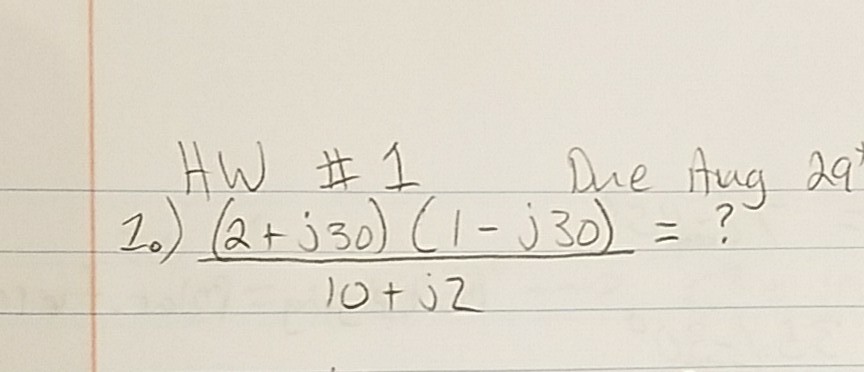 HW # 1 Due Aug 29
1.) (2 + j30) (1 - j30) = ?
10 + j2